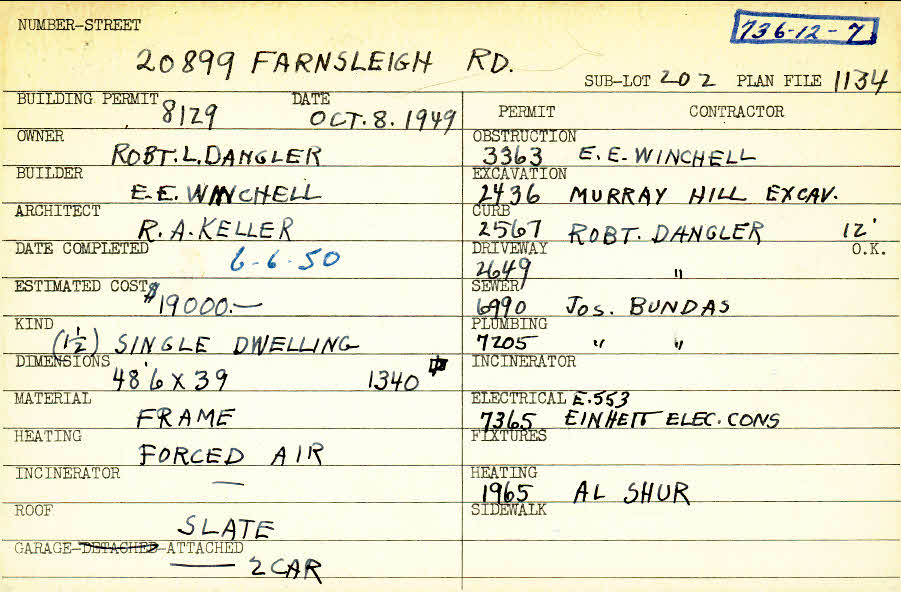 NUMBER-STREET
736-12-7
20899 FARNSLEIGH RD.
SUB-LOT 202 PLAN FILE 1134
BUILDING PERMIT 8129 DATE OCT. 8. 1949
OWNER ROBT. L. DANGLER
BUILDER E.E. WINCHELL
ARCHITECT R.A. KELLER
DATE COMPLETED 6-6-50
ESTIMATED COST $19000.—
KIND (1½) SINGLE DWELLING
DIMENSIONS 48'6 X 39 1340
MATERIAL FRAME
HEATING FORCED AIR
INCINERATOR —
ROOF SLATE
GARAGE-DETACHED-ATTACHED
2 CAR
PERMIT CONTRACTOR
OBSTRUCTION
3363 E.E. WINCHELL
EXCAVATION
2436 MURRAY HILL EXCAV.
CURB
2567 ROBT. DANGLER 12'
DRIVEWAY O.K.
2649 "
SEWER
6990 JOS. BUNDAS
PLUMBING
7205 " "
INCINERATOR
ELECTRICAL E.553
7365 EINHEIT ELEC. CONS
FIXTURES
HEATING
1965 AL SHUR
SIDEWALK